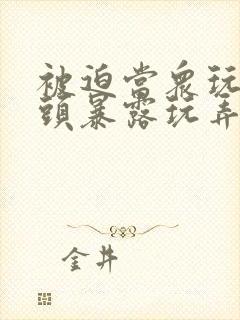 被迫当衆玩
頭暴露玩弄
金井